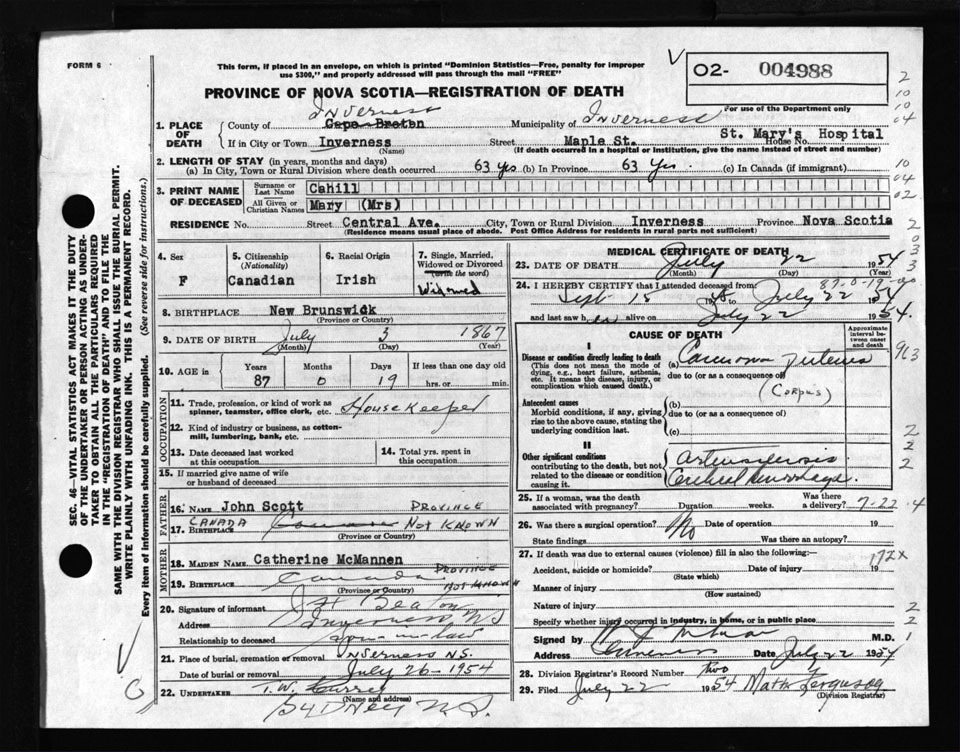 FORM 6
This form, if placed in an envelope, on which is printed "Dominion Statistics—Free, penalty for improper
use $300," and properly addressed will pass through the mail "FREE"
02- 004988
For use of the Department only
PROVINCE OF NOVA SCOTIA—REGISTRATION OF DEATH
Inverness
1. PLACE OF DEATH { County of Cape Breton Municipality of Inverness
If in City or Town Inverness Street Maple St. House No. St. Mary's Hospital
(Name) (If death occurred in a hospital or institution, give the name instead of street and number)
2. LENGTH OF STAY (in years, months and days)
(a) In City, Town or Rural Division where death occurred 63 Yrs (b) In Province 63 Yrs. (c) In Canada (if immigrant)
3. PRINT NAME OF DECEASED { Surname or Last Name Cahill
All Given or Christian Names Mary (Mrs)
RESIDENCE No. Street Central Ave. City, Town or Rural Division Inverness Province Nova Scotia
(Residence means usual place of abode. Post Office Address for residents in rural parts not sufficient)
4. Sex F
5. Citizenship (Nationality) Canadian
6. Racial Origin Irish
7. Single, Married, Widowed or Divorced (write the word) Widowed
8. BIRTHPLACE New Brunswick
(Province or Country)
9. DATE OF BIRTH July 3 1867
(Month) (Day) (Year)
10. AGE in Years 87 Months 0 Days 19 If less than one day old hrs. or min.
OCCUPATION
11. Trade, profession, or kind of work as spinner, teamster, office clerk, etc. Housekeeper
12. Kind of industry or business, as cotton-mill, lumbering, bank, etc.
13. Date deceased last worked at this occupation
14. Total yrs. spent in this occupation
15. If married give name of wife or husband of deceased
FATHER
16. NAME John Scott PROVINCE
17. BIRTHPLACE CANADA NOT KNOWN
MOTHER
18. MAIDEN NAME Catherine McMannen
19. BIRTHPLACE Canada PROVINCE NOT KNOWN
(Province or Country)
20. Signature of informant
Address Inverness NS
Relationship to deceased
21. Place of burial, cremation or removal INVERNESS N.S.
Date of burial or removal July 26-1954
22. UNDERTAKER T.W. Currey
(Name and address)
SYDNEY N.S.
MEDICAL CERTIFICATE OF DEATH
23. DATE OF DEATH July 22 1954
(Month) (Day) (Year)
87-0-19-00
24. I HEREBY CERTIFY that I attended deceased from:
Sept 15 to July 22 1954
and last saw her alive on July 22 1954.
CAUSE OF DEATH
Approximate interval between onset and death
I
Disease or condition directly leading to death
(This does not mean the mode of dying, e.g., heart failure, asthenia, etc. It means the disease, injury, or complication which caused death.)
(a) Carcinoma Uterus
due to (or as a consequence of)
(Corpus)
Antecedent causes
Morbid conditions, if any, giving rise to the above cause, stating the underlying condition last.
(b)
due to (or as a consequence of)
(c)
II
Other significant conditions
contributing to the death, but not related to the disease or condition causing it.
Cerebral Hemorrhage.
25. If a woman, was the death associated with pregnancy? Duration weeks. Was there a delivery? 7-22-4
26. Was there a surgical operation? No Date of operation 19
State findings Was there an autopsy?
27. If death was due to external causes (violence) fill in also the following:—
172X
Accident, suicide or homicide? Date of injury 19
(State which)
Manner of injury
(How sustained)
Nature of injury
Specify whether injury occurred in industry, in home, or in public place
Signed by M.D.
Address Inverness Date July 22 1954
28. Division Registrar's Record Number two
29. Filed July 22 1954 Matt Ferguson
(Division Registrar)
SEC. 46—VITAL STATISTICS ACT MAKES IT THE DUTY
OF THE UNDERTAKER OR PERSON ACTING AS UNDER-
TAKER TO OBTAIN ALL THE PARTICULARS REQUIRED
IN THE "REGISTRATION OF DEATH" AND TO FILE THE
SAME WITH THE DIVISION REGISTRAR WHO SHALL ISSUE THE BURIAL PERMIT.
WRITE PLAINLY WITH UNFADING INK. THIS IS A PERMANENT RECORD.
Every item of information should be carefully supplied. (See reverse side for instructions.)
2
10
10
04
10
04
02
2
0
3
3
963
2
2
2
2
2
1